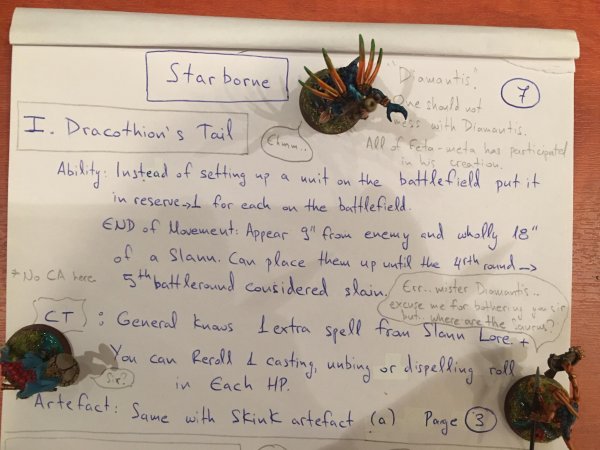 Starborne
7
"Diamantis".
One should not
mess with Diamantis.
All of Feta-meta has participated
in his creation.
I. Dracothion's Tail
Ehmm..
Ability: Instead of setting up a unit on the battlefield put it
in reserve→1 for each on the battlefield.
END of Movement: Appear 9" from enemy and wholly 18"
of a Slann. Can place them up until the 4rth round →
5th battleround considered slain.
* No CA here
Err.. mister Diamantis..
excuse me for bothering you sir
but.. where are the "saurus?"
CT : General knows 1 extra spell from Slann Lore. +
You can Reroll 1 casting, unbing or dispelling roll
in Each HP.
Sir?
Artefact: Same with Skink artefact (a) Page 3